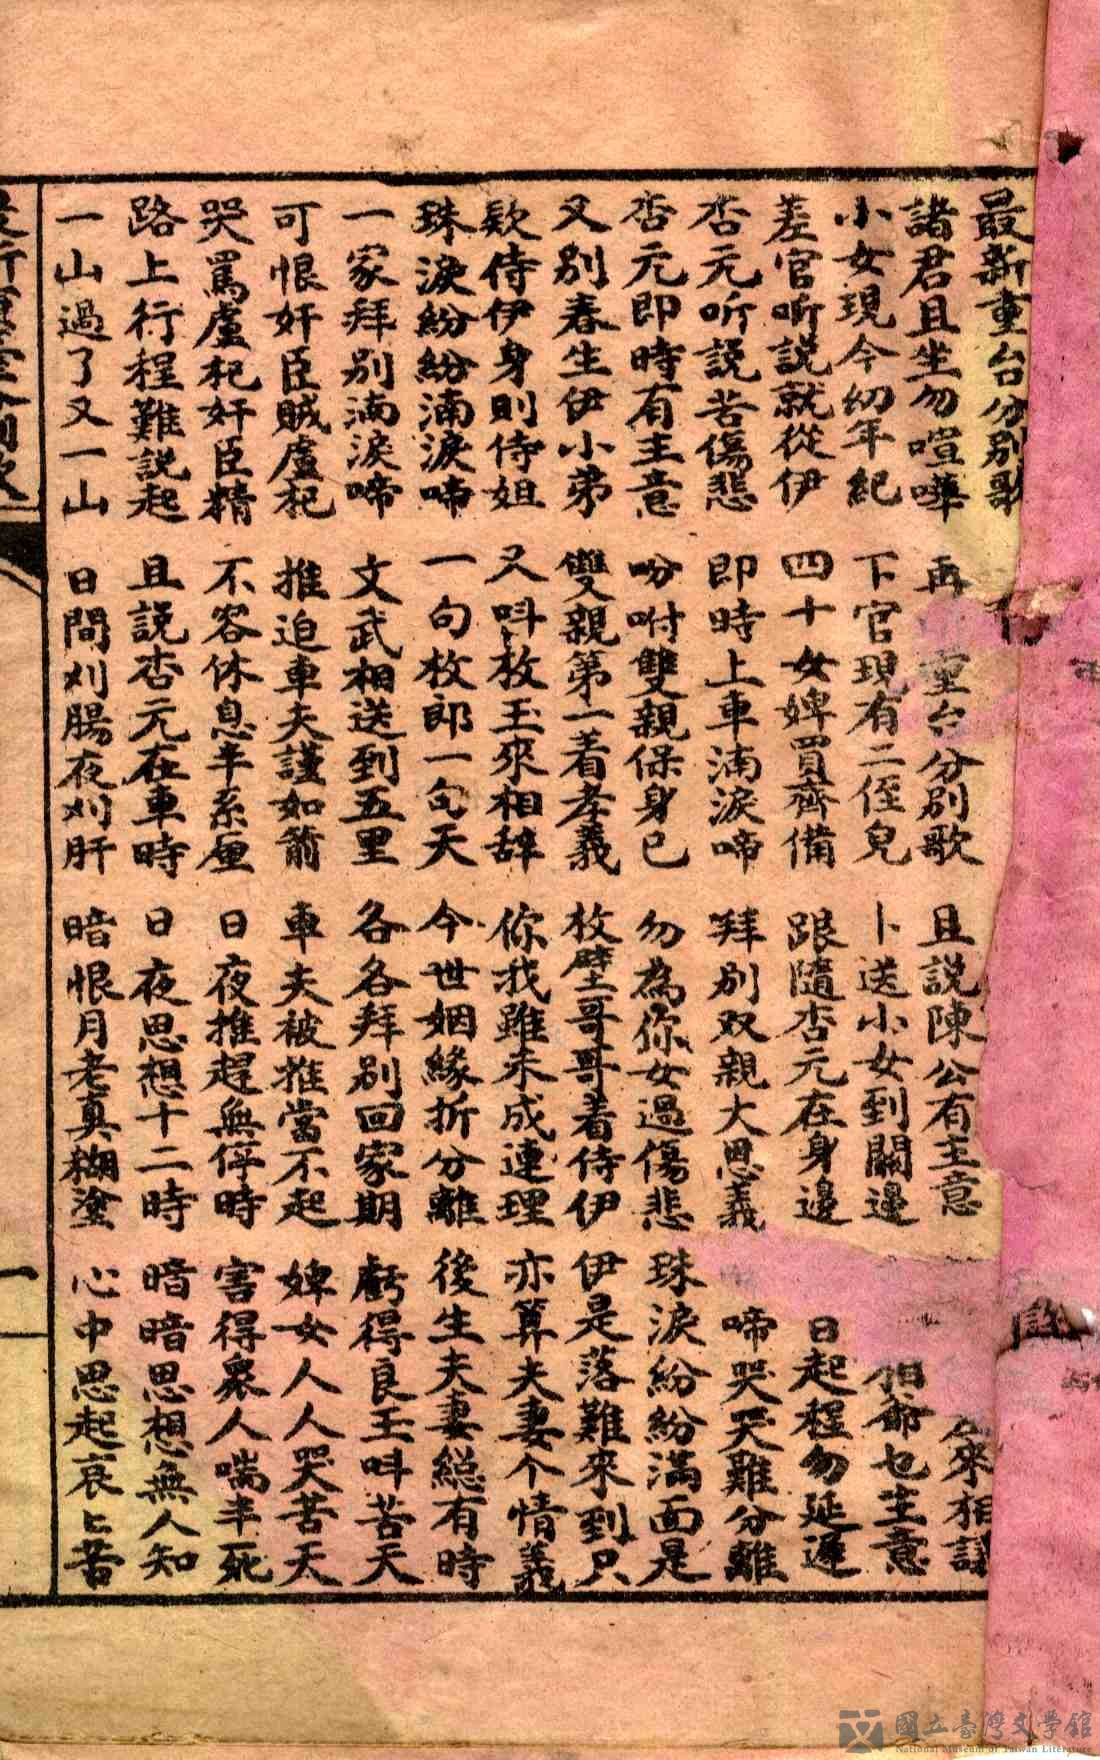 最新重台分別歌
諸君且坐勿喧嘩 再 重台分別歌 且說陳公有主意 來相議
小女現今幼年紀 下官現有二侄兒 卜送小女到關邊 相爺乜生意
差官听說就從伊 四十女婢買齊備 跟隨杏元在身邊 日起程勿延遲
杏元听說苦傷悲 即時上車滴淚啼 拜別双親大恩義 啼哭哭難分離
杏元即時有主意 吩咐雙親保身己 勿為你女過傷悲 珠淚紛紛滿面是
又別春生伊小弟 雙親第一着孝義 枚壁哥哥着侍伊 伊是落難來到只
欵侍伊身則侍姐 又叫枚玉來相辞 你我雖未成連理 亦算夫妻个情義
珠淚紛紛滴淚啼 一句枚郎一句天 今世姻緣折分離 後生夫妻總有時
一家拜別滴淚啼 文武相送到五里 各各拜別回家期 虧得良玉叫苦天
可恨奸臣賊盧杞 推迫車夫謹如箭 車夫被推當不起 婢女人人哭苦天
哭罵盧杞奸臣精 不容休息半系厘 日夜推趕無停時 害得衆人喘半死
路上行程難說起 且說杏元在車時 日夜思想十二時 暗暗思想無人知
一山過了又一山 日間刈腸夜刈肝 暗恨月老真糊塗 心中思起哀匕苦
一
國立臺灣文學館
National Museum of Taiwan Literature